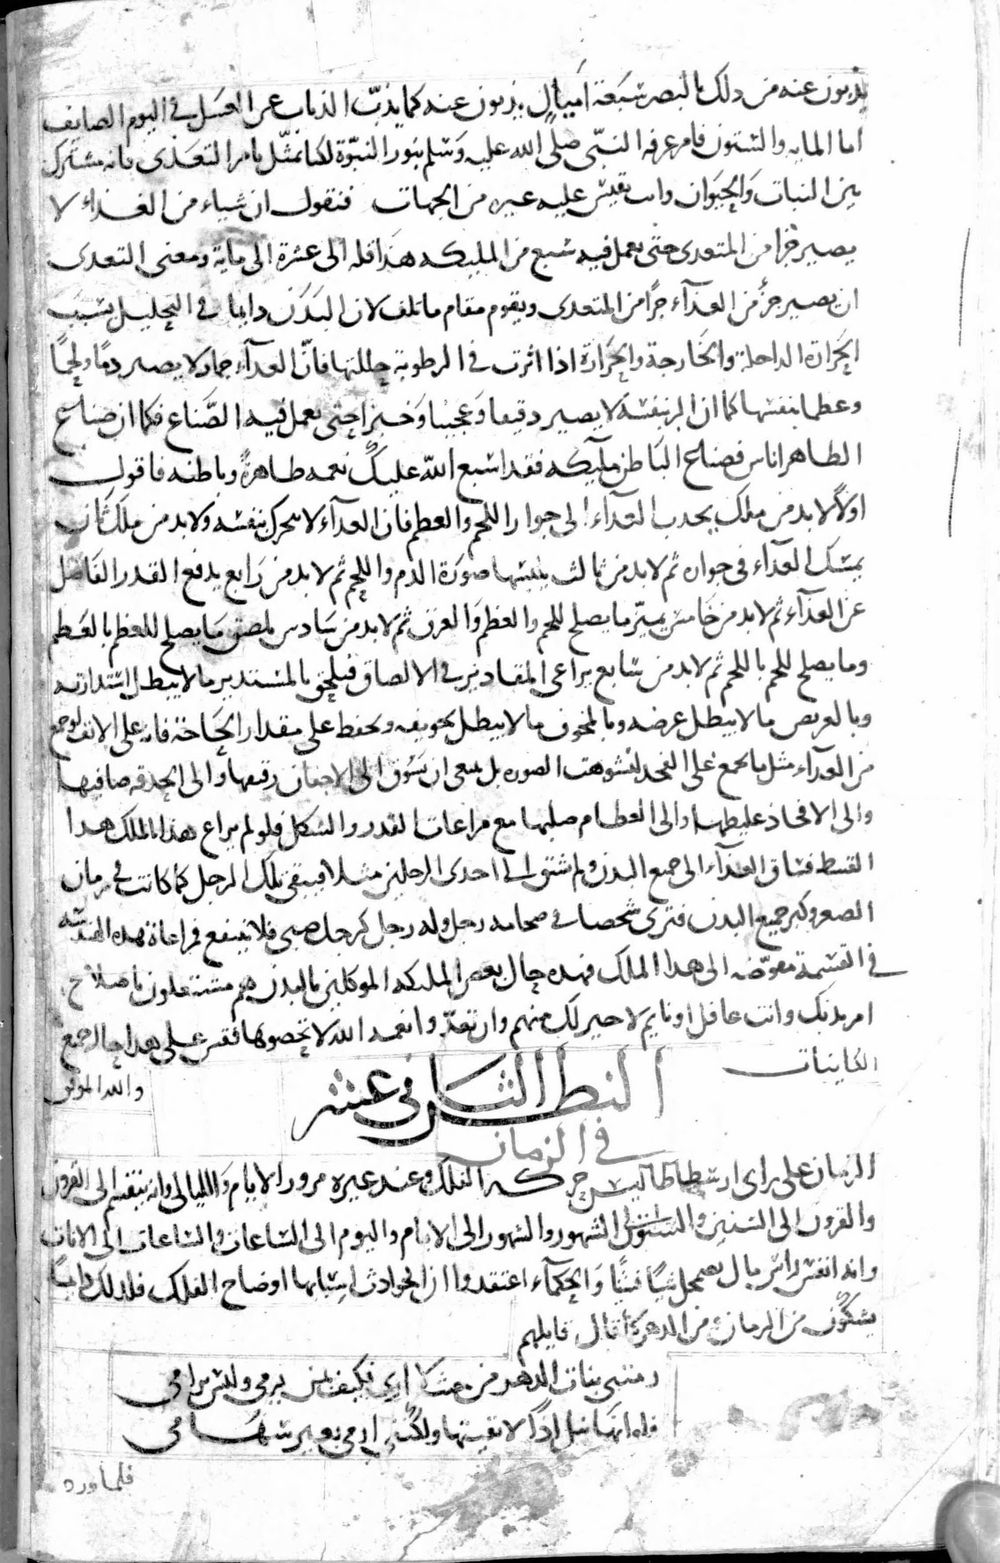 يذبون عنه من ذلك بالبصر سبعة أميال يذبون عنه كما يذب الذباب عن العسل في اليوم الصايف
اما الماية والستون فامر عرفه النبي صلى الله عليه وسلم بنور النبوة لكنا نمثل بامر التغذي فانه مشترك
بين النبات والحيوان وانت تقيس عليه غيره من الجهات فنقول ان شياء من الغذاء لا
يصير جزا من المتغدى حتى يعمل فيه سبع من المليكه هذا اقله الى عشرة الى ماية ومعنى التغدى
ان يصير جزأ من الغدآء جزأ من المتغدى ويقوم مقام ما تلف لان البدن دايما في التحليل بسبب
الحرارة الداخلة والخارجة والحرارة اذا اثرت في الرطوبة حللتها فان الغدآء جماد لا يصير دما ولحما
وعظما بنفسها كما ان البر بنفسه لا يصير دقيقا وعجينا وخبزا حتى يعمل فيه الصناع فكما ان صناع
الظاهر اناس فصناع الباطن ملآيكه فقد اسبغ الله عليك نعمه ظاهرة وباطنه فاقول
اولا لا بد من ملك يجدب الغدآء الى جوار اللحم والعظم فان الغدآء لا يتحرك بنفسه ولا بد من ملك ثان
يمسك الغدآء في جواره ثم لا بد من ثالث يلبسها صورة الدم واللحم ثم لا بد من رابع يدفع القدر الفاضل
عن الغدآء ثم لا بد من خامس يميز ما يصلح للحم والعظم والعرق ثم لا بد من سادس يلصق ما يصلح للعظم بالعظم
وما يصلح للحم باللحم ثم لا بد من سابع يراعى المقادير في الالصاق فيلحق بالمستدير ما لا يبطل استدارته
وبالعريض ما لا يبطل عرضه وبالمجوف ما لا يبطل تجويفه ويحفظ على مقدار الحاجة فانه على الانف لو جمع
من الغدآء مثل ما يجمع على الفخد لتشوهت الصوره بل ينبغى ان يسوق الى الاجفان رقيقها والى الحدقه صافيها
والى الافخاذ غليظها والى العظام صلبها مع مراعات القدر والشكل فلو لم يراع هذا الملك هدا
القسط فساق الغدآء الى جميع البدن ولم يسق الى احدى الرجلين مثلا فيبقى تلك الرجل كما كانت في زمان
الصغر وكبر جميع البدن فترى شخصا في ضخامه رجل وله رجل كرجل صبى فلا ينتفع فمراعاة هذه الهندسه
في القسمة مفوضه الى هدا الملك فهده حال بعض المليكه الموكلين بالبدن هم مشتغلون باصلاح
امر بدنك وانت غافل او نايم لا خبر لك منهم وان تعدوا نعمه الله لا تحصوها فقس على هدا حال جميع
الكاينات
والله الموفق
النظر الثانى عشر
في الزمان
الزمان على راى ارسطاطاليس حركه الفلك وعند غيره مرور الايام والليالى وانه ينقسم الى القرون
والقرون الى السنين والسنون الى الشهور والشهور الى الايام واليوم الى الساعات والساعات الى الانات
وانه انفس راس مال يضمحل شيا فشيا والحكمآء اعتقدوا ان الحوادث اسبابها اوضاع الفلك فلدلك دايما
يشكون من الزمان ومن الدهر كما قال قايلهم
رمتنى بنات الدهر من حيث لا ارى فكيف بمن يرمى وليس برامى
فلو انها نبل اذا لاتقيتها ولكننى ارمى بغير سهامى
فلما ورد